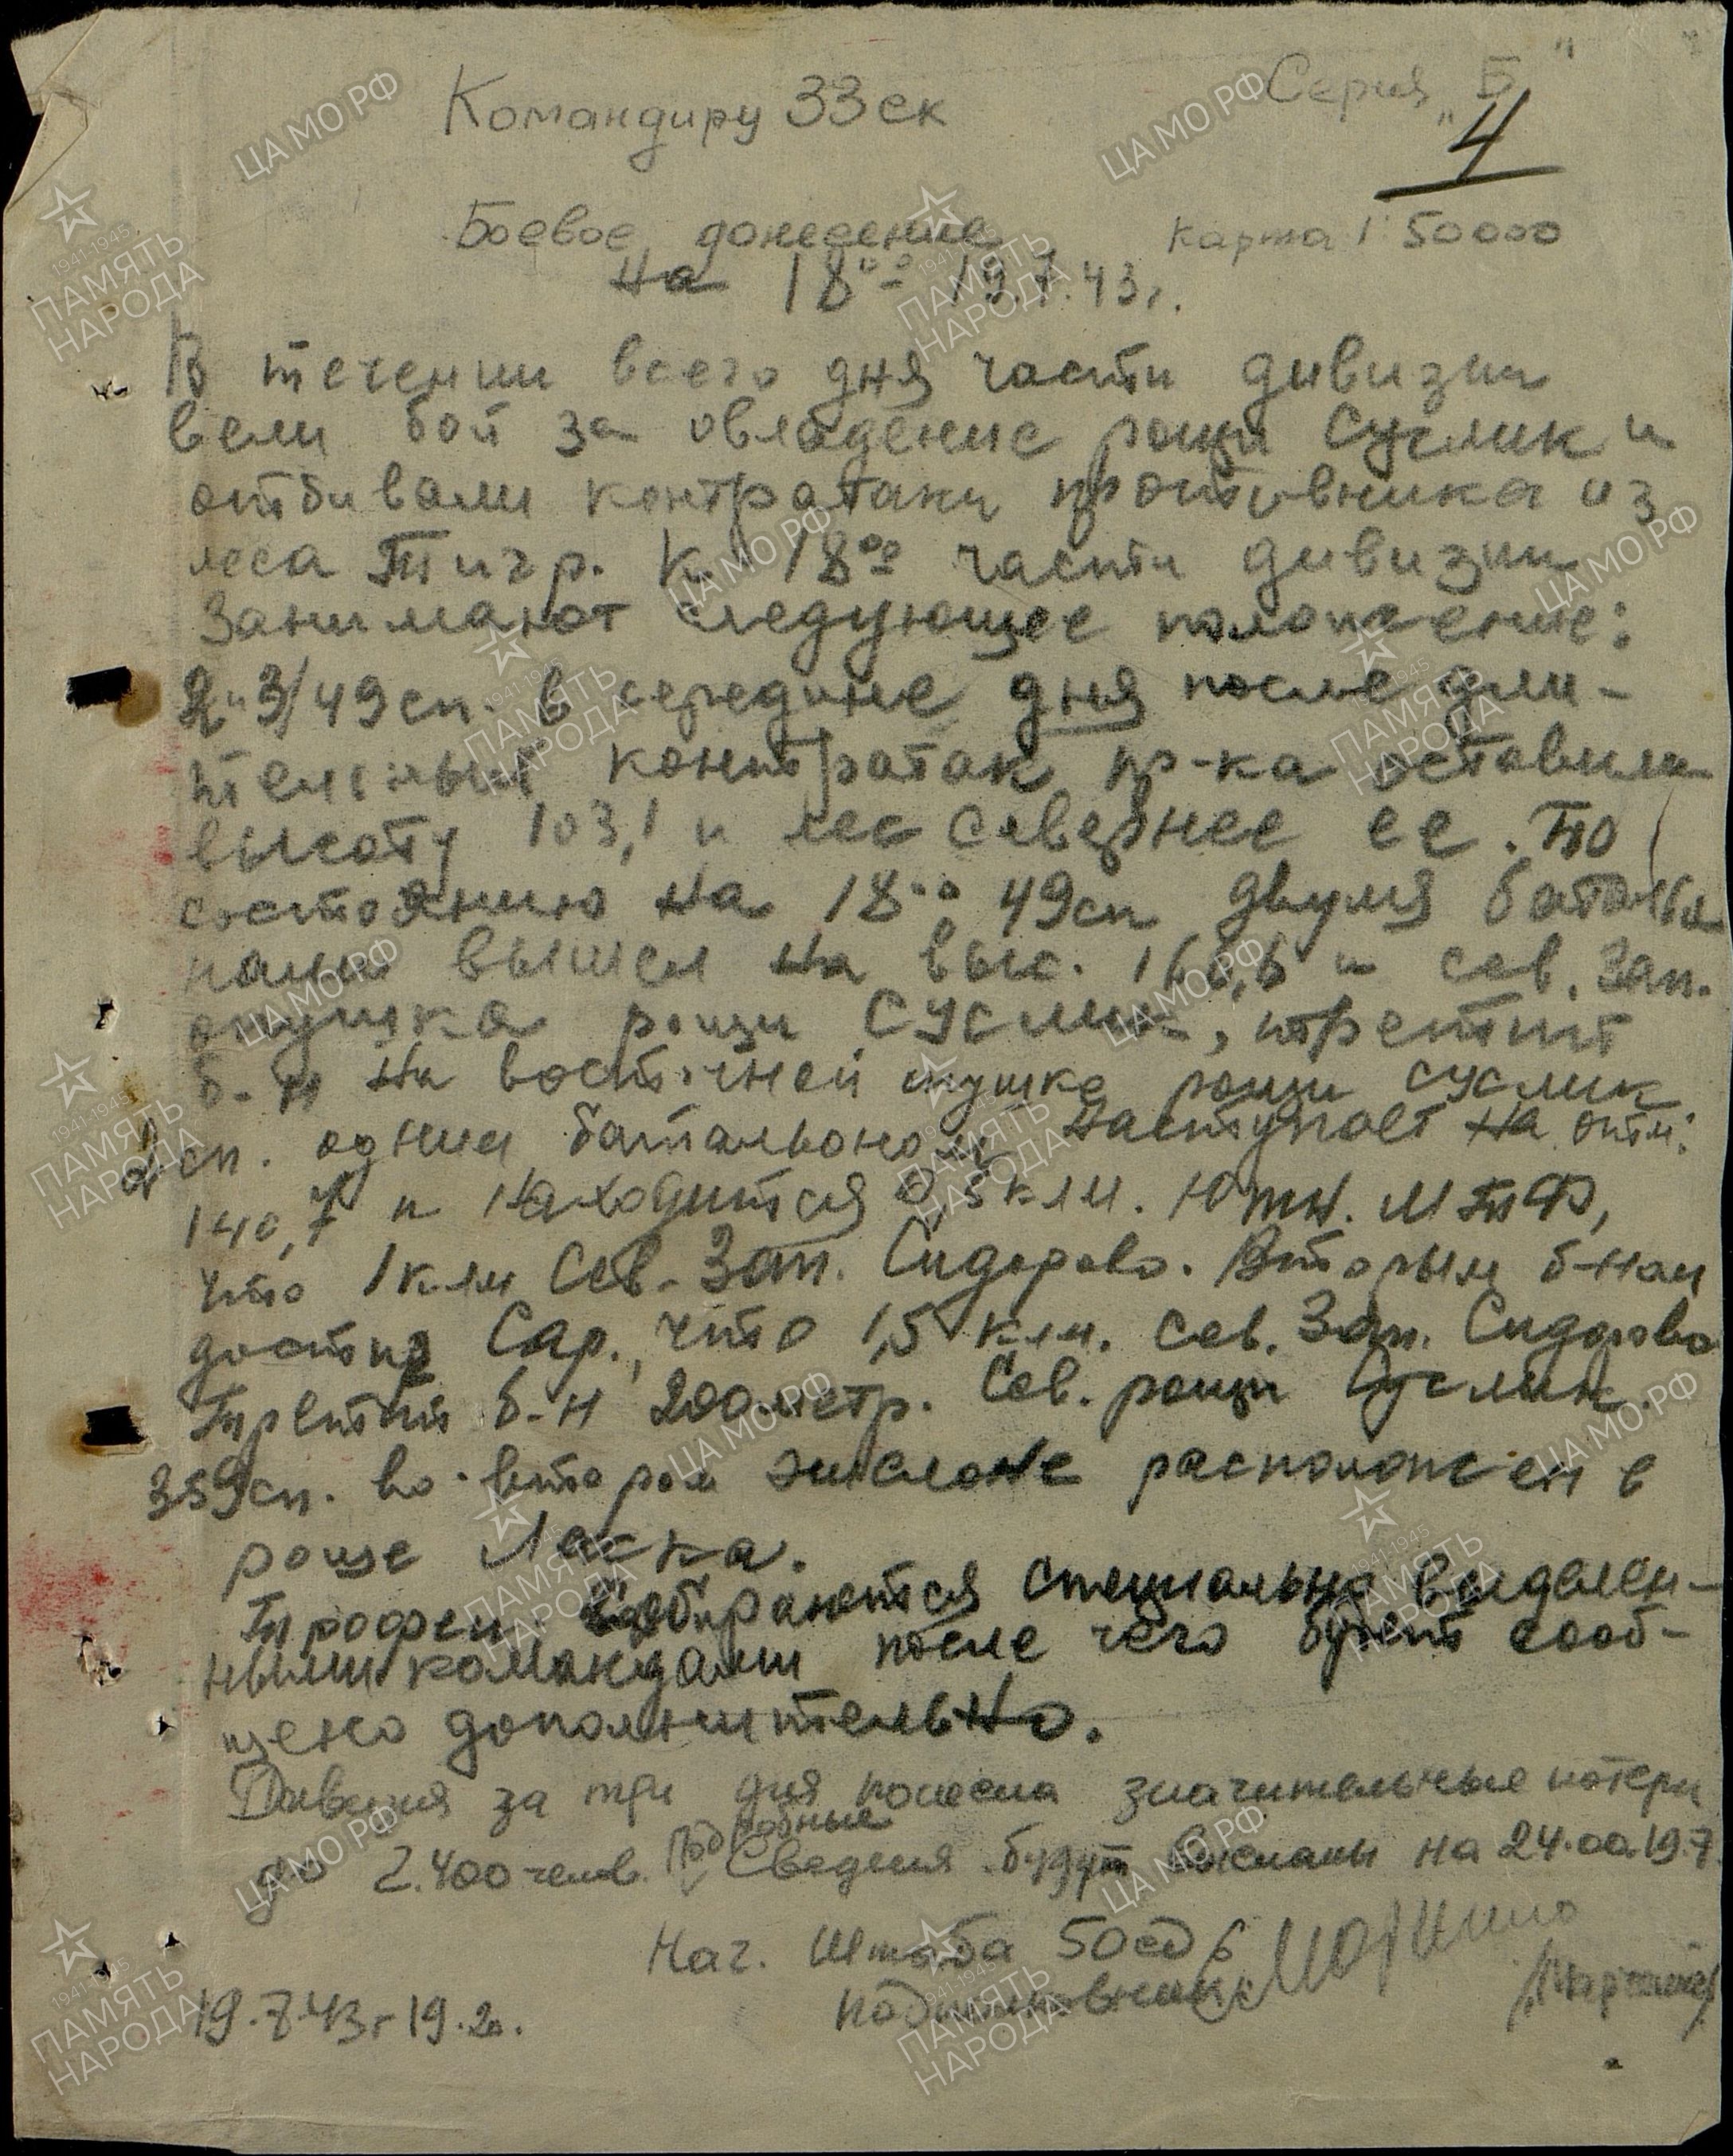 Серия „Б"
Командиру 33ск
4
Боевое донесение
карта 1:50000
на 18⁰⁰ 19.7.43г.
В течении всего дня части дивизии
вели бой за овладение рощи Суслик и
отбивали контратаки противника из
леса Тигр. К 18⁰⁰ части дивизии
занимают следующее положение:
2 и 3/49сп. в середине дня после дли-
тельных контратак пр-ка оставили
высоту 103,1 и лес севернее ее. По
состоянию на 18⁰⁰ 49сп двумя баталье
нами вышел на выс. и сев. зап.
опушка рощи Суслик, третий
б-н на восточней опушке рощи Суслик
2сп. одним батальоном наступает на отм:
140,7 и находится 0,5 км. южн. МТФ,
что 1км Сев-Зап. Сидорово. Вторым б-ном
достиг Сар., что 1,5 км. сев. Зап. Сидорово
Третий б-н 200метр. Сев. рощи Суслик.
359сп. во втором эшелоне расположен в
роще Ласка.
Трофеи собираются специально выделен-
ными командами после чего будет сооб-
щено дополнительно.
Дивизия за три дня понесла значительные потери
до 2.400 челов. Подробные Сведения будут высланы на 24.00.19.7.
Нач. Штаба 50сд
подполковник
19.7.43г 19.20.
ЦА МО РФ
1941-1945
ПАМЯТЬ
НАРОДА